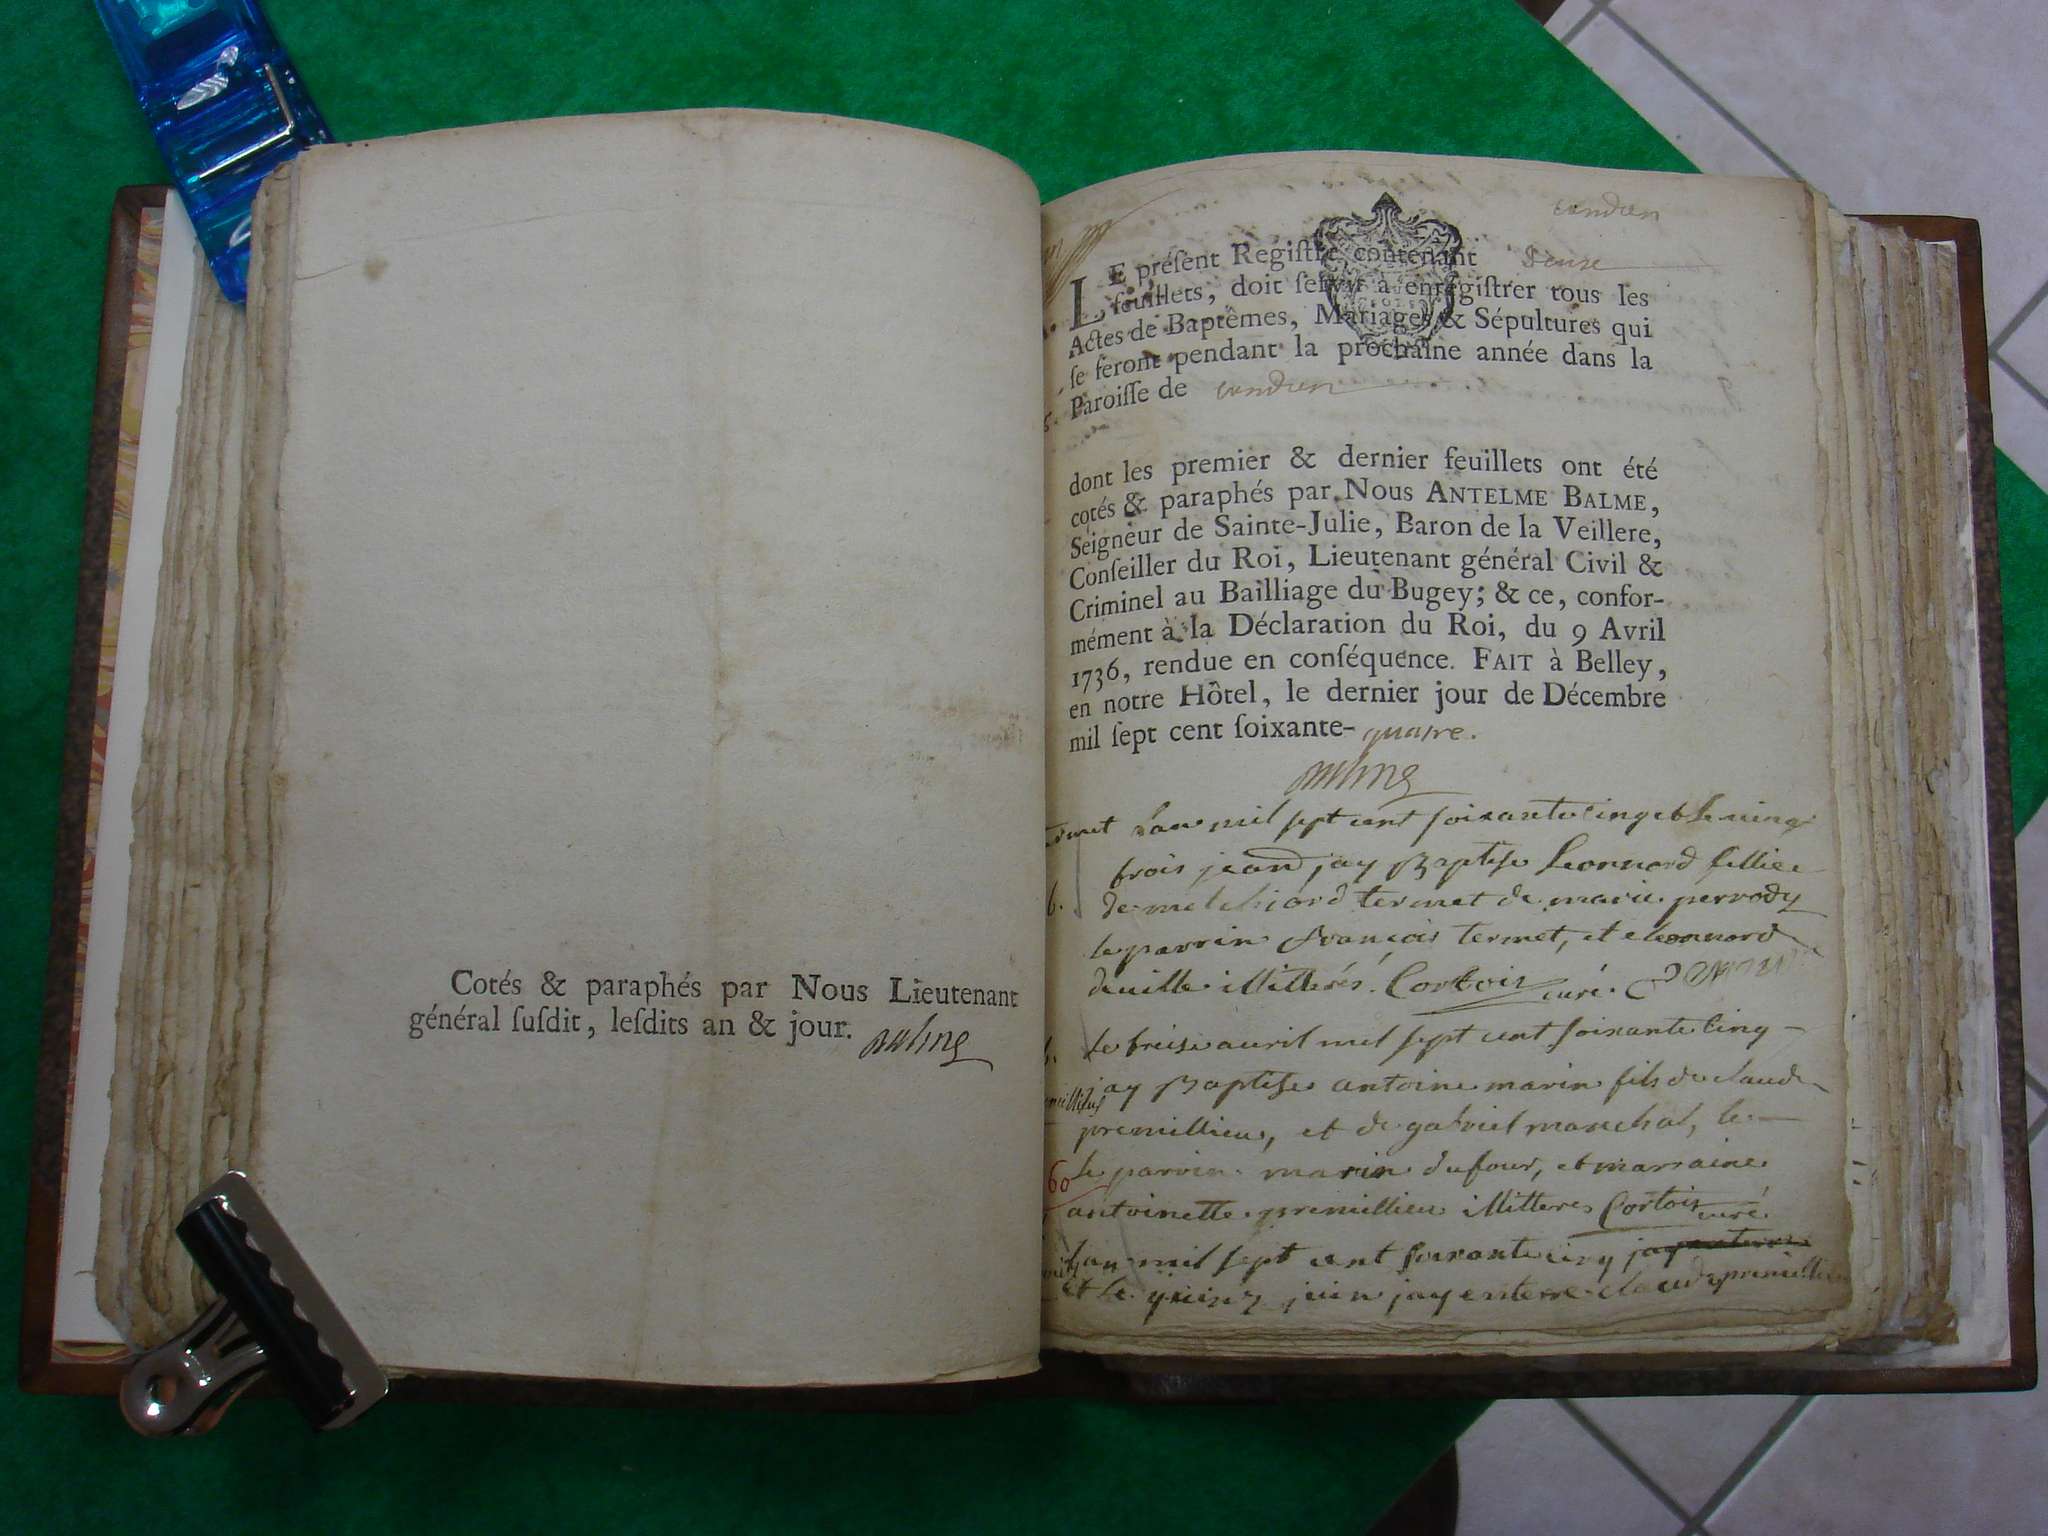 Cotés & paraphés par Nous Lieutenant
général ſuſdit, leſdits an & jour.
LE préſent Regiſtre contenant
feuillets, doit ſervir à enregiſtrer tous les
Actes de Baptêmes, Mariages & Sépultures qui
ſe feront pendant la prochaine année dans la
Paroiſſe de
dont les premier & dernier feuillets ont été
cotés & paraphés par Nous ANTELME BALME,
Seigneur de Sainte-Julie, Baron de la Veillere,
Conſeiller du Roi, Lieutenant général Civil &
Criminel au Bailliage du Bugey; & ce, confor-
mément à la Déclaration du Roi, du 9 Avril
1736, rendue en conſéquence. FAIT à Belley,
en notre Hôtel, le dernier jour de Décembre
mil ſept cent ſoixante-quatre.
Lan mil sept cent soixante cinq et le vingt
trois jay Baptise Leonnord fillie
de melchiord termet de marie perrody
le parrin françois termet, et eleonnord
deville illitterés. Cortois curé.
le treise avril mil sept cent soixante cinq
jay Baptise antoine marin fils de claude
premillieu, et de gabriel marechal, le
le parrin marin dufour, et marraine
60
antoinette premillieu illitteres Cortois curé.
lan mil sept cent soixante cinq
et le quinz juin jay enterre claude premillieu